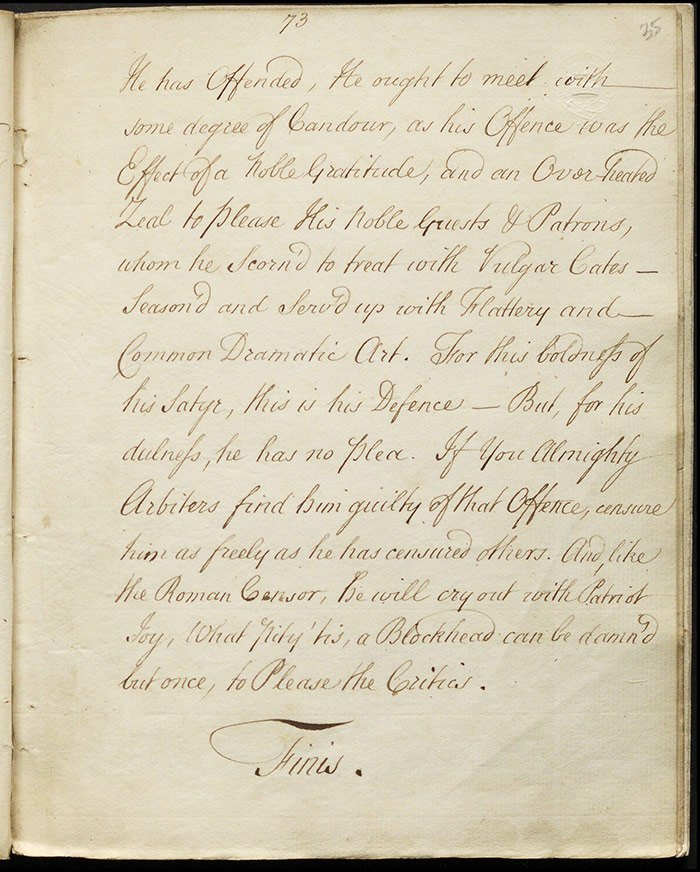 73
35
He has Offended, He ought to meet with
some degree of Candour, as his Offence was the
Effect of a Noble Gratitude, and an Over-heated
Zeal to please His Noble Guests & Patrons,
whom he Scorn'd to treat with Vulgar Cates —
Season'd and Serv'd up with Flattery and —
Common Dramatic Art. For this boldness of
his Satyr, this is his Defence — But, for his
dulness, he has no plea. If You Almighty
Arbiters find him guilty of that Offence, censure
him as freely as he has censured others. And, like
the Roman Censor, he will cry out with Patriot
Joy, What Pity 'tis, a Blockhead can be damn'd
but once, to Please the Critics.
Finis.